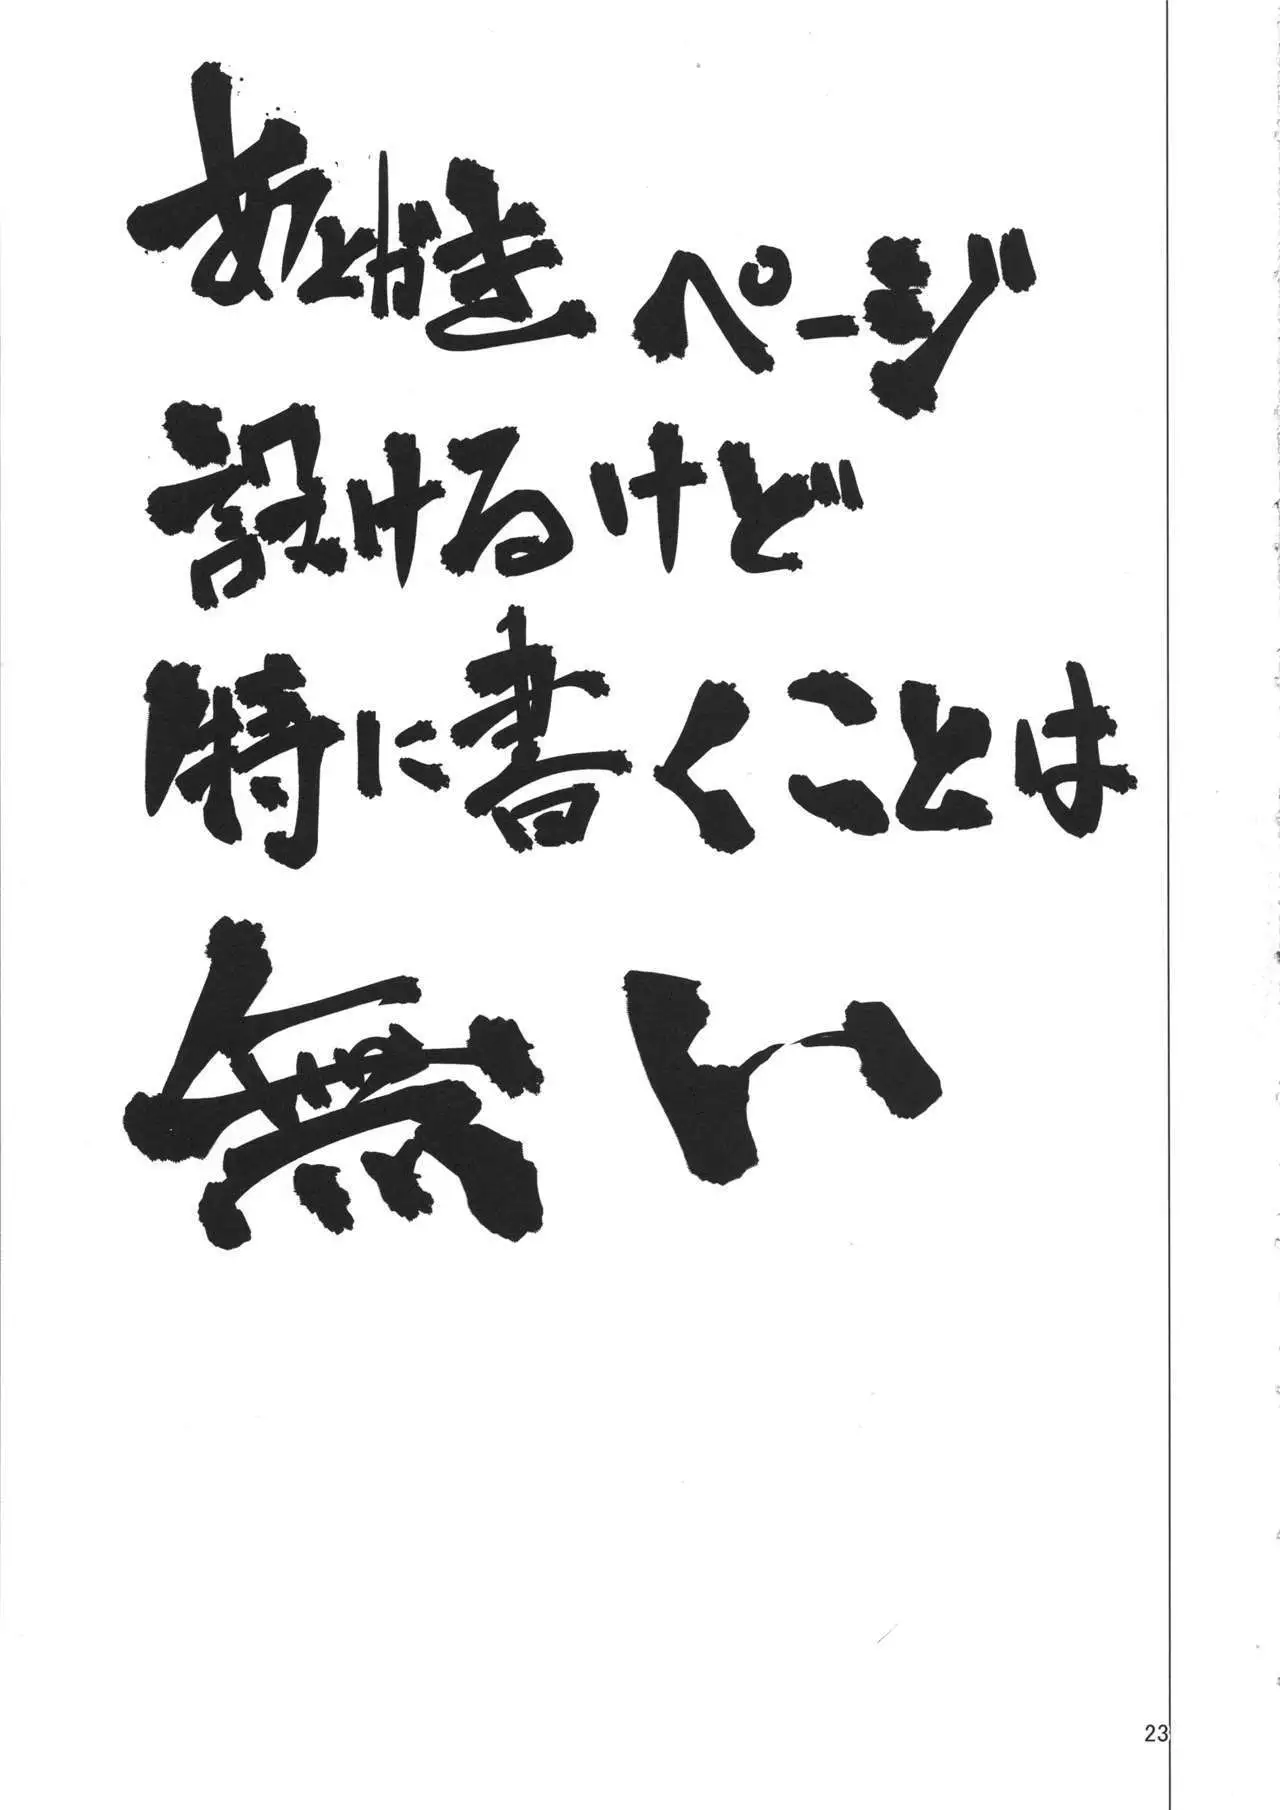 あとがきページ
設けるけど
特に書くことは
無い
23